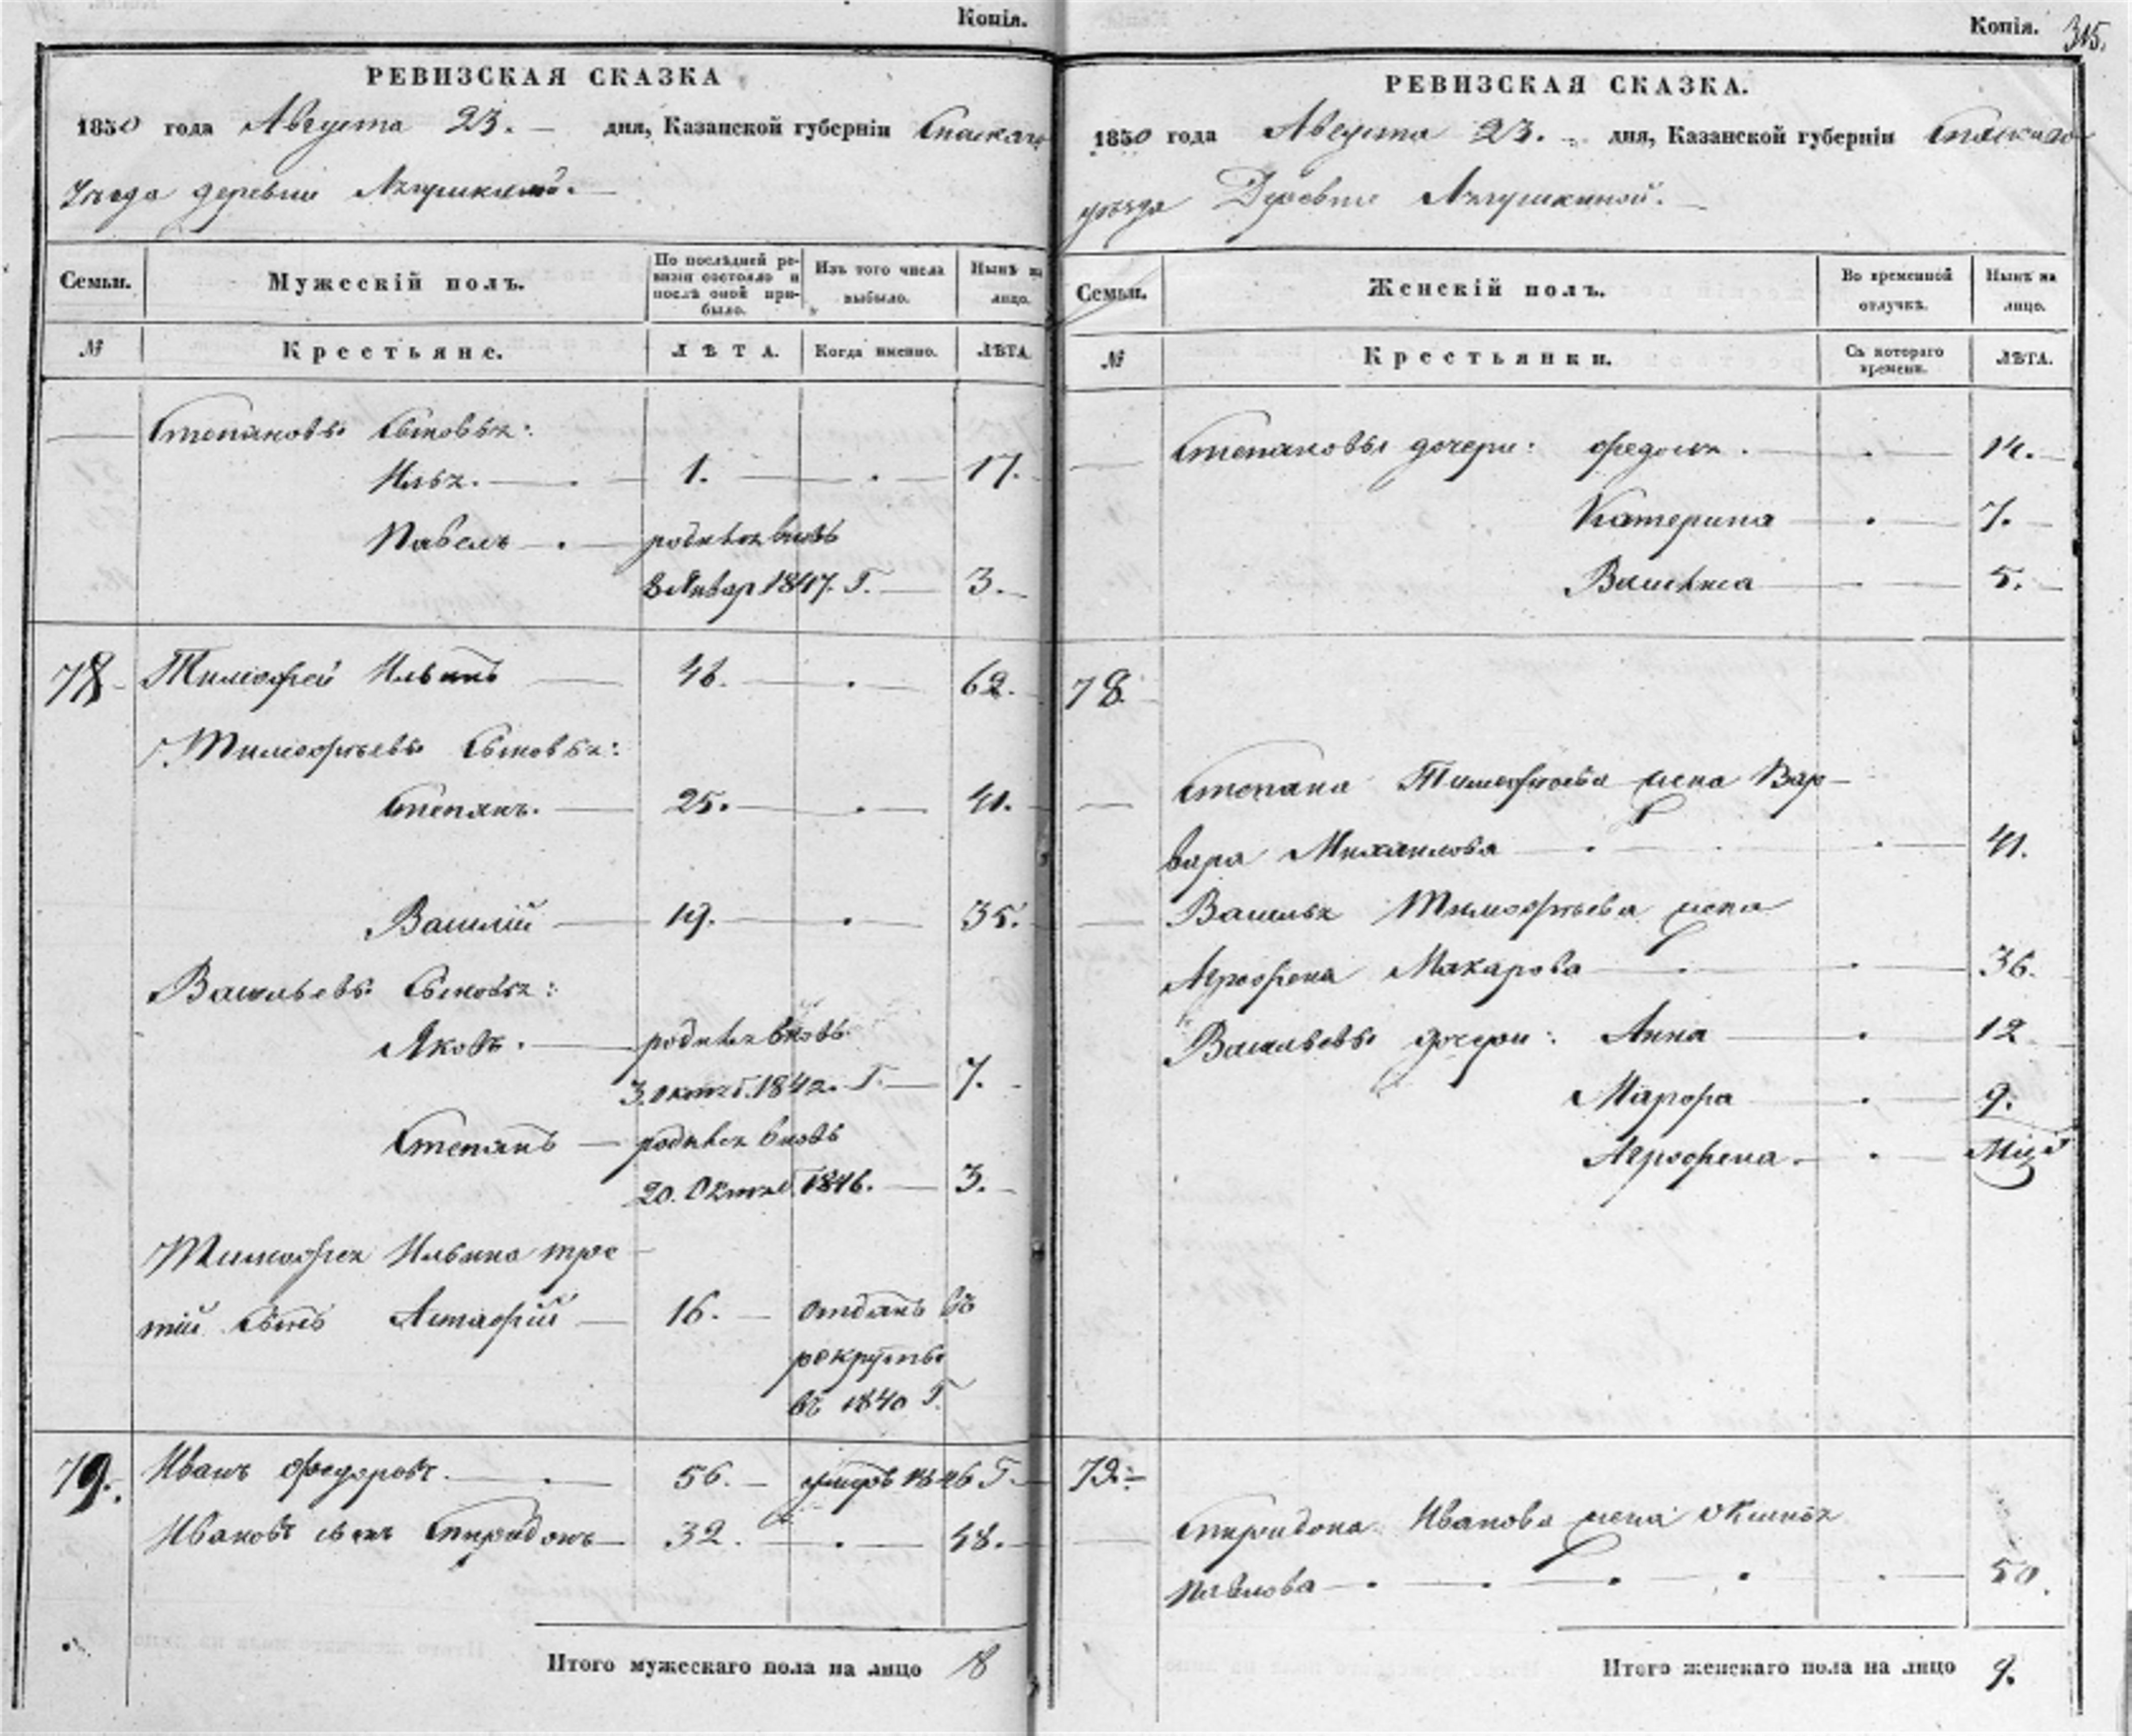 Копія.
РЕВИЗСКАЯ СКАЗКА
1850 года Августа 23. дня, Казанской губерніи Спаскаго
Уѣзда деревни
Семьи. Мужескій полъ. По послѣдней ревизіи состояло и послѣ оной прибыло. Изъ того числа выбыло. Нынѣ на лицо.
№ Крестьяне. ЛѢТА. Когда именно. ЛѢТА.
Степановы Сыновья:
Илья. 1. 17.
Павелъ родился вновь
8 Январ 1847. Г. 3.
78 Тимофей Ильинъ 46. 62.
Тимофѣевы Сыновья:
Степанъ. 25. 41.
Василій 19. 35.
Васильевы Сыновья:
Яковъ. родился вновь
3. Октяб. 1842. Г. 7.
Степанъ родился вновь
20. Октяб. 1846. 3.
Тимофея Ильина тре
тій сынъ Астафій 16. отданъ въ
рекруты
въ 1840 Г.
79. Иванъ Федоровъ. 56. умеръ 1846 Г.
Ивановъ сынъ Спиридонъ 32. 48.
Итого мужескаго пола на лицо 8
Копія. 315.
РЕВИЗСКАЯ СКАЗКА.
1850 года Августа 23. дня, Казанской губерніи Спаскаго
уѣзда Деревни
Семьи. Женскій полъ. Во временной отлучкѣ. Нынѣ на лицо.
№ Крестьянки. Съ котораго времени. ЛѢТА.
Степановы дочери: Федосья. 14.
Катерина 7.
Василиса 5.
78.
Степана Тимофѣева жена Вар-
вара Михаилова 41.
Василья Тимофѣева жена
Аграфена Макарова 36.
Васильевы дочери: Анна 12
Марфа 9.
Аграфена.
79.
Спиридона Иванова жена Оксинья
Павлова 50.
Итого женскаго пола на лицо 9.